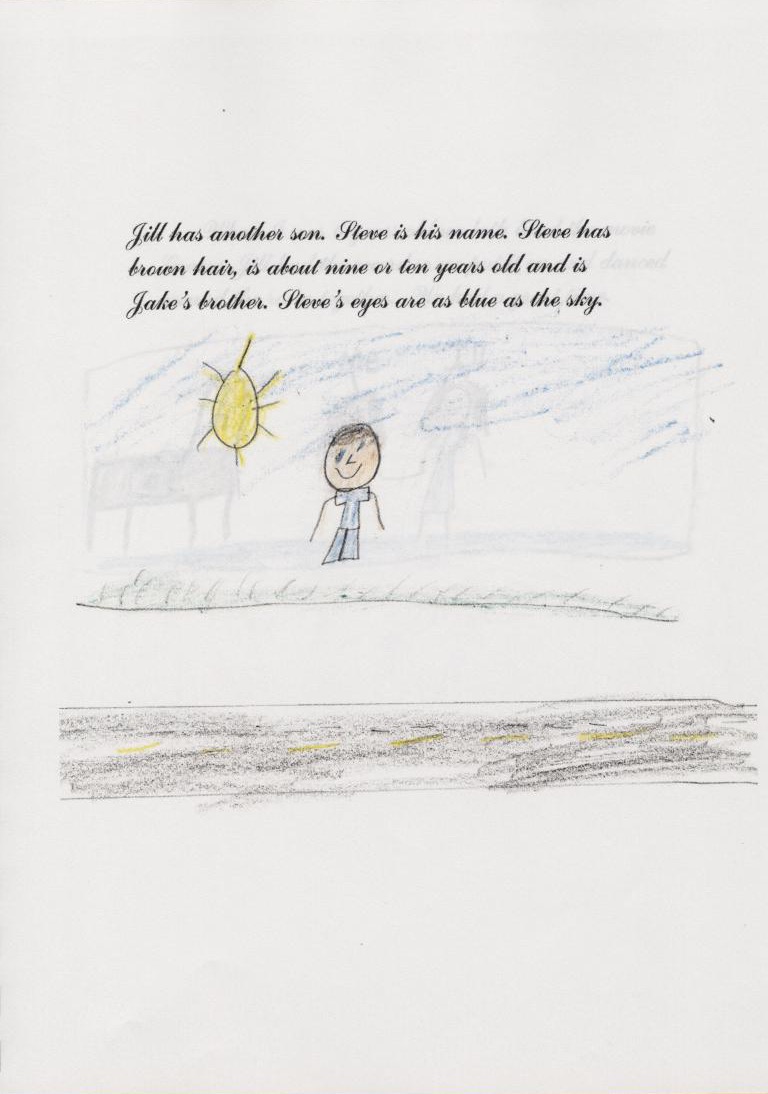 Jill has another son. Steve is his name. Steve has
brown hair, is about nine or ten years old and is
Jake's brother. Steve's eyes are as blue as the sky.